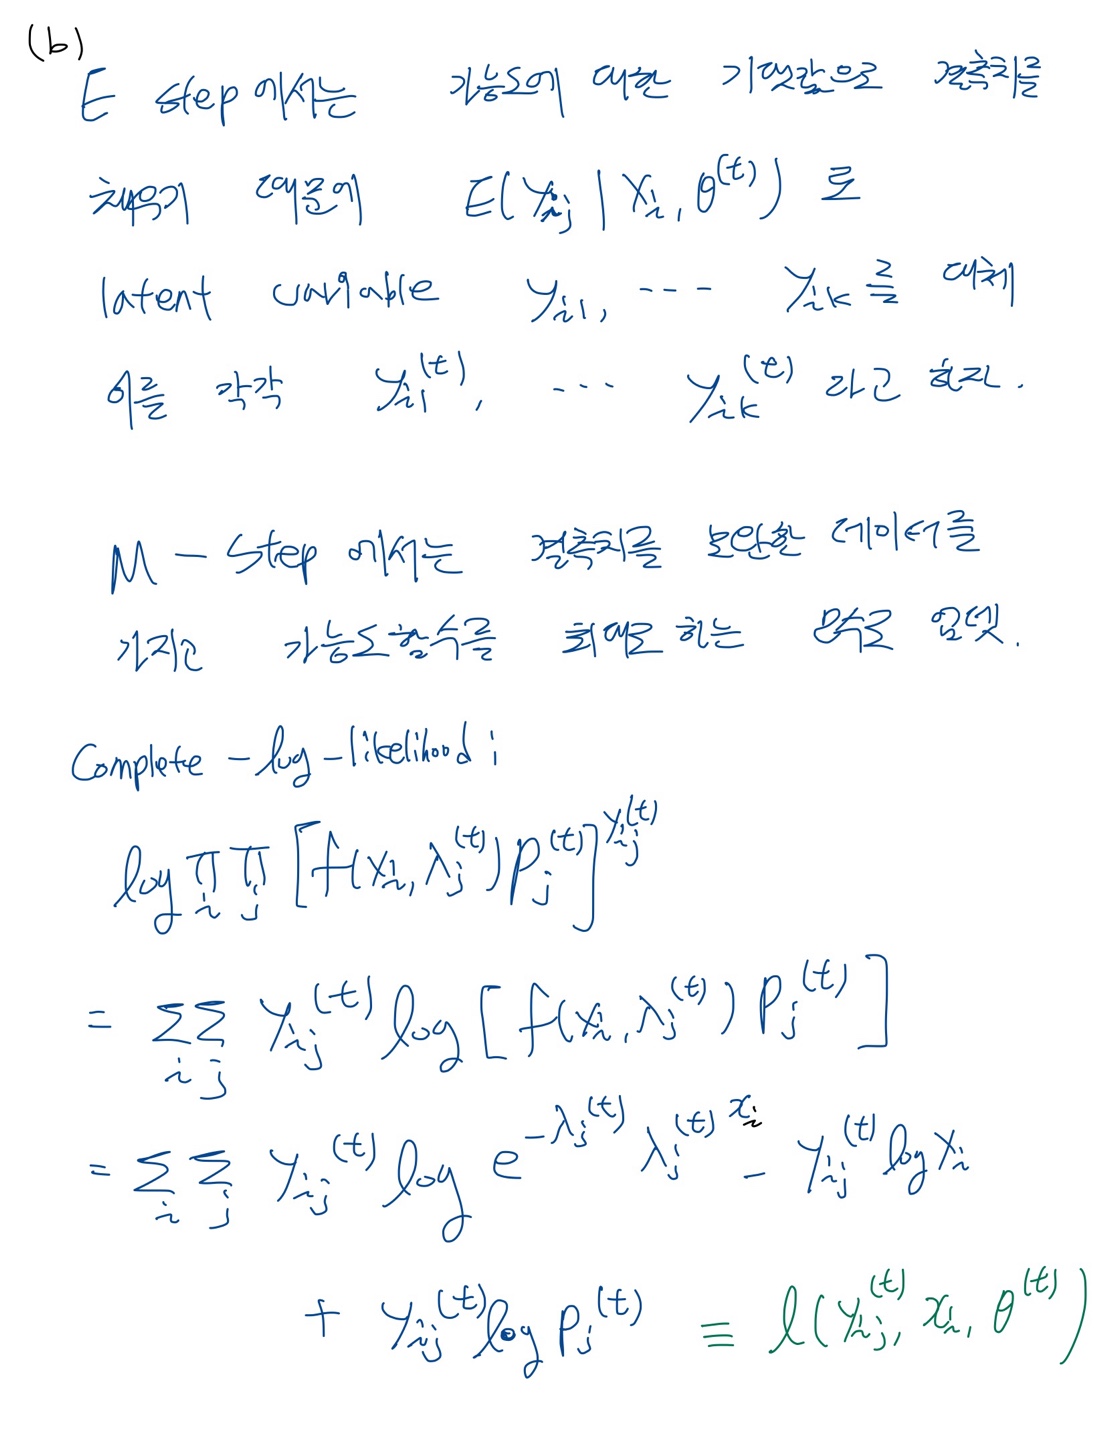 (b)
E step에서는 가능도에 대한 기댓값으로 결측치를
채우기 때문에 E(Y_{ij} | X_i, θ^{(t)}) 로
latent variable Y_{i1}, --- Y_{ik}를 대체
이를 각각 Y_{i1}^{(t)}, ... Y_{ik}^{(t)} 라고 하자.
M - Step 에서는 결측치를 보완한 데이터를
가지고 가능도함수를 최대로 하는 모수로 업뎃.
Complete -log-likelihood ;
log ∏_i ∏_j [f(x_i, λ_j^{(t)}) p_j^{(t)}]^{Y_{ij}^{(t)}}
= Σ_i Σ_j Y_{ij}^{(t)} log [f(x_i, λ_j^{(t)}) p_j^{(t)}]
= Σ_i Σ_j Y_{ij}^{(t)} log e^{-λ_j^{(t)}} λ_j^{(t) x_i} - Y_{ij}^{(t)} log x_i
+ Y_{ij}^{(t)} log p_j^{(t)} ≡ l(Y_{ij}^{(t)}, x_i, θ^{(t)})